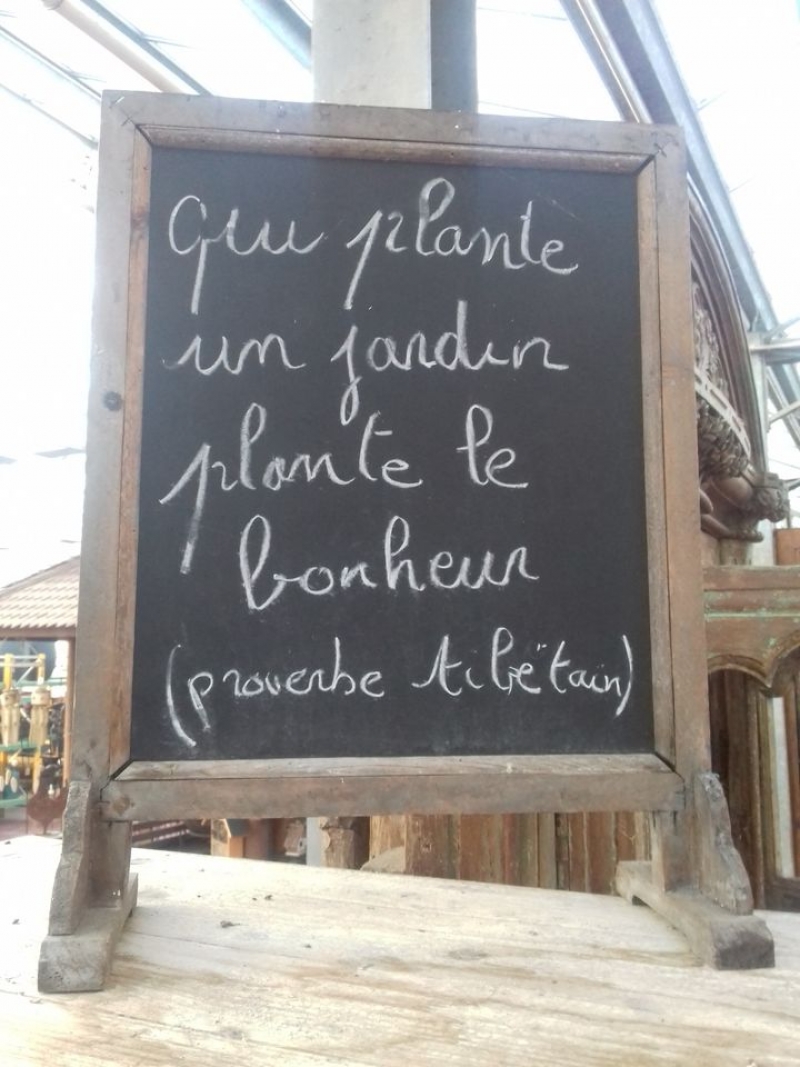 Qui plante
un jardin
plante le
bonheur
(proverbe tibëtain)